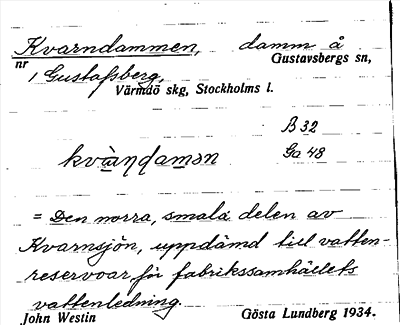 Kvarndammen, damm å
nr 1 Gustafsberg, Gustavsbergs sn,
Värmdö skg, Stockholms l.
B 32
kvàṇḍamən Ga 48
= Den norra, smala delen av
Kvarnsjön, uppdämd till vatten-
reservoar för fabrikssamhällets
vattenledning.
John Westin Gösta Lundberg 1934.